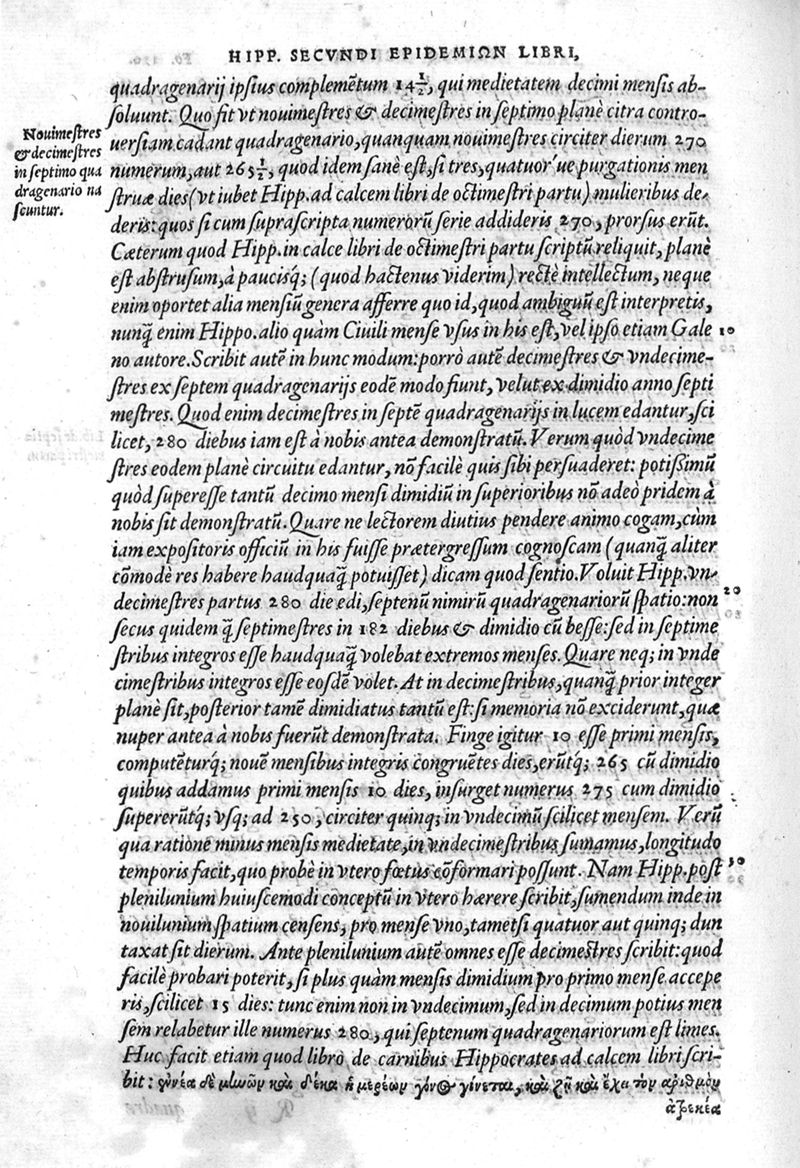 HIPP. SECVNDI EPIDEMIΩN LIBRI,
quadragenarij ipsius complemẽtum 14 1/2, qui medietatem decimi mensis ab-
soluunt. Quo fit vt nouimestres & decimestres in septimo planè citra contro-
uersiam cadant quadragenario, quanquam nouimestres circiter dierum 270
numerum, aut 265 1/2, quod idem sanè est, si tres, quatuor'ue purgationis men
struæ dies (vt iubet Hipp. ad calcem libri de octimestri partu) mulieribus de-
deris: quos si cum suprascripta numerorũ serie addideris 270, prorsus erũt.
Cæterum quod Hipp. in calce libri de octimestri partu scriptũ reliquit, planè
est abstrusum, à paucisq; (quod hactenus viderim) rectè intellectum, neque
enim oportet alia mensiũ genera afferre quo id, quod ambiguũ est interpretis,
nunq̃ enim Hippo. alio quàm Ciuili mense vsus in his est, vel ipso etiam Gale
no autore. Scribit autẽ in hunc modum: porrò autẽ decimestres & vndecime-
stres ex septem quadragenarijs eodẽ modo fiunt, velut ex dimidio anno septi
mestres. Quod enim decimestres in septẽ quadragenarijs in lucem edantur, sci
licet, 280 diebus iam est à nobis antea demonstratũ. Verum quòd vndecime
stres eodem planè circuitu edantur, nõ facilè quis sibi persuaderet: potissimũ
quòd superesse tantũ decimo mensi dimidiũ in superioribus nõ adeò pridem à
nobis sit demonstratũ. Quare ne lectorem diutius pendere animo cogam, cùm
iam expositoris officiũ in his fuisse prætergressum cognoscam (quanq̃ aliter
cõmodè res habere haudquaq̃ potuisset) dicam quod sentio. Voluit Hipp. vn-
decimestres partus 280 die edi, septenũ nimirũ quadragenariorũ spatio: non
secus quidem q̃ septimestres in 182 diebus & dimidio cũ besse: sed in septime
stribus integros esse haudquaq̃ volebat extremos menses. Quare neq; in vnde
cimestribus integros esse eosdẽ volet. At in decimestribus, quanq̃ prior integer
planè sit, posterior tamẽ dimidiatus tantũ est: si memoria nõ exciderunt, quæ
nuper antea à nobis fuerũt demonstrata. Finge igitur 10 esse primi mensis,
computẽturq; nouẽ mensibus integris congruẽtes dies, erũtq; 265 cũ dimidio
quibus addamus primi mensis 10 dies, insurget numerus 275 cum dimidio
supererũtq; vsq; ad 250, circiter quinq; in vndecimũ scilicet mensem. Verũ
qua ratione minus mensis medietate, in vndecimestribus sumamus, longitudo
temporis facit, quo probè in vtero fœtus cõformari possunt. Nam Hipp. post
plenilunium huiuscemodi conceptũ in vtero hærere scribit, sumendum inde in
nouilunium spatium censens, pro mense vno, tametsi quatuor aut quinq; dun
taxat sit dierum. Ante plenilunium autẽ omnes esse decimestres scribit: quod
facilè probari poterit, si plus quàm mensis dimidium pro primo mense accepe
ris, scilicet 15 dies: tunc enim non in vndecimum, sed in decimum potius men
sem relabetur ille numerus 280, qui septenum quadragenariorum est limes.
Huc facit etiam quod libro de carnibus Hippocrates ad calcem libri scri-
bit: ἐννέα δὲ μηνῶν καὶ δέκα ἡμερέων γόνος γίνεται, καὶ ζῇ καὶ ἔχει τὸν ἀριθμὸν
ἀτρεκέα
Nouimestres
& decimestres
in septimo qua
dragenario na
scuntur.
10
20
30